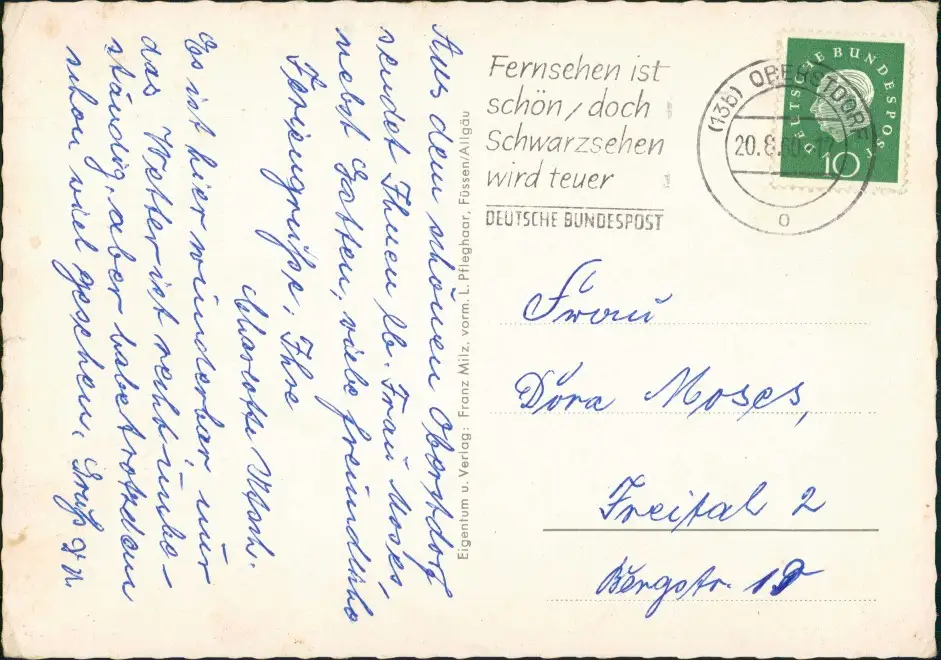 Aus dem schönen Oberstdorf
sendet Ihnen lb. Frau Moses,
nebst Gatten, viele freundliche
Feriengrüße, Ihre
Charlotte
Es ist hier wunderbar, nur
das Wetter ist recht unbe-
ständig, aber habe trotzdem
schon viel gesehen. Gruß
Eigentum u. Verlag: Franz Milz, vorm. L. Pfleghaar, Füssen/Allgäu
Fernsehen ist
schön, doch
Schwarzsehen
wird teuer
DEUTSCHE BUNDESPOST
(13b) OBERSTDORF
20.8.60-17
o
DEUTSCHE BUNDESPOST
10
Frau
Dora Moses,
Freital 2
Bergstr. 19